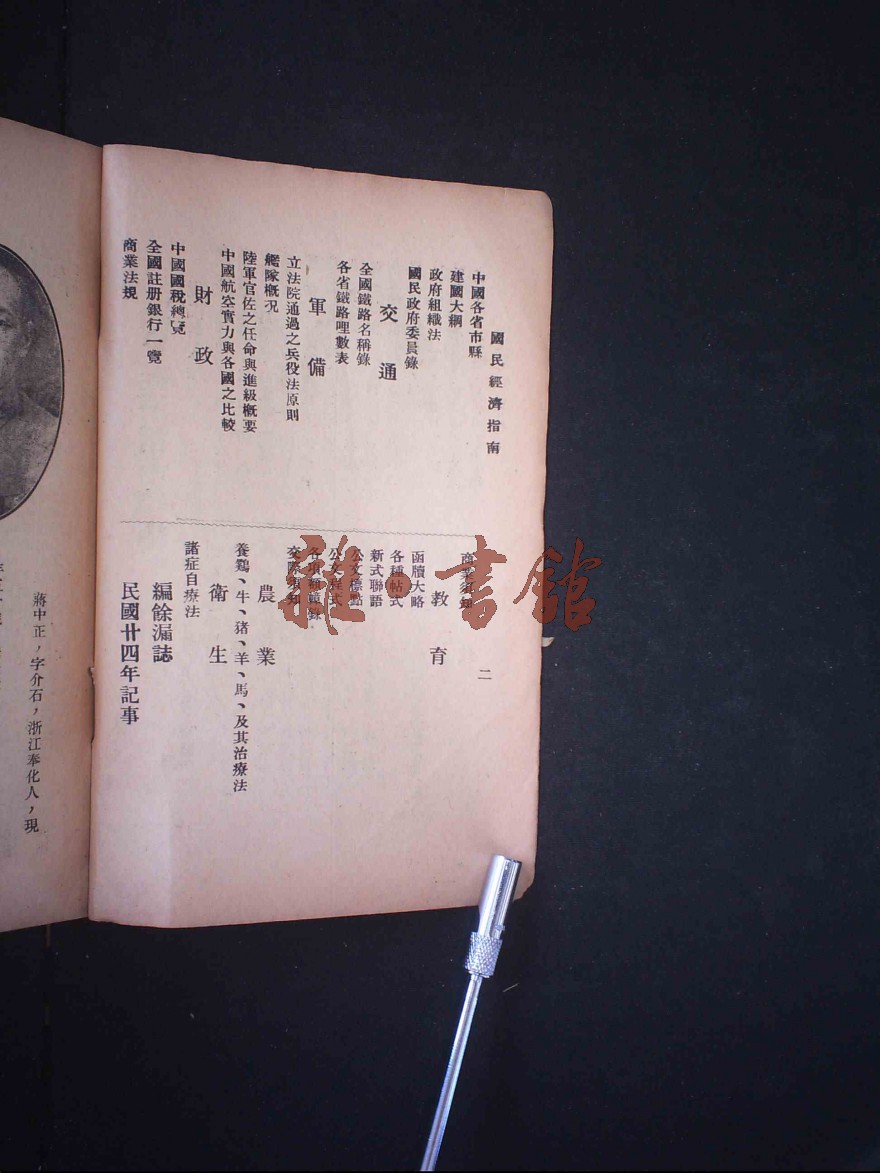 國民經濟指南
中國各省市縣
建國大綱
政府組織法
國民政府委員錄
交通
全國鐵路名稱錄
各省鐵路哩數表
軍備
立法院通過之兵役法原則
艦隊概况
陸軍官佐之任命與進級概要
中國航空實力與各國之比較
財政
中國國稅總覽
全國註册銀行一覽
商業法規
二
商業須知
教育
函牘大略
各種帖式
新式聯語
公文標點
公文程式
各項額鏡錄
交際須知
農業
養鷄、牛、猪、羊、馬、及其治療法
衛生
諸症自療法
編餘漏誌
民國廿四年記事
蔣中正，字介石，浙江奉化人，現
雜·書館